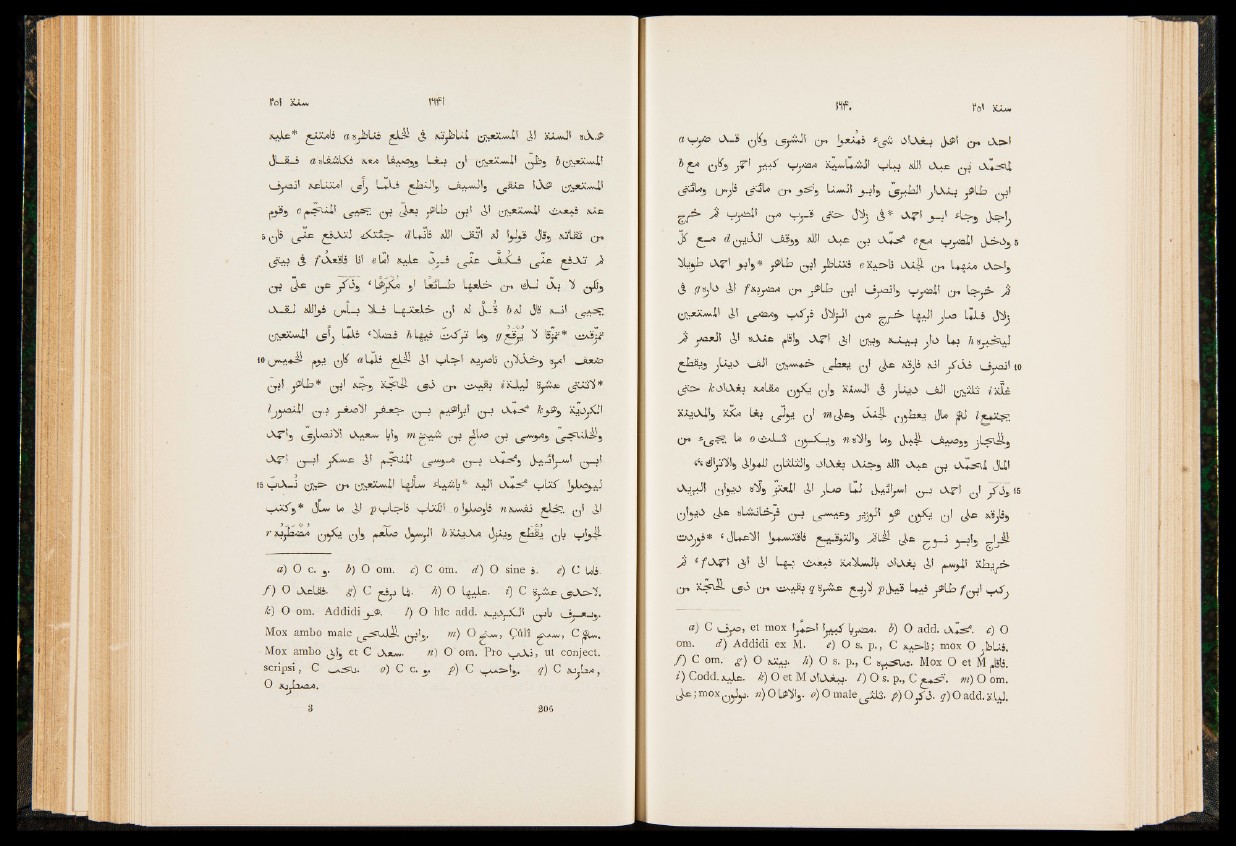 ١٦٤٠ سنة ٢٥١
احد من اهل بغداد شىء فمُنعوا من الشرى وكان قد ضرب a
لمحمّد بن عبد الله بباب الشمّاسيّة مضرب كبير احمر وكان مع b
ابن طاهر بندار الطبرىّ وابو السنا ونحو من مائتى فارس ومائتى
راجل وجاء ابو احمد *فى زلّال حتى قرب من المضرب ثم خرج
5 ودخل المضرب مع c محمّد بن عبد الله ووقف الذين d مع كلّ
واحد منهما من الجند ناحية e فتناظر ابن طاهر *وابو احمد طويلا
ثم خرجا من المضرب وانصرف ابن طاهر من مضربه f الى داره g فى
زلّال فلما صار اليها خرج من الزلّال فركب ومضى الى المستعين
ليخبره h بما دار بينه وبين ابى احمد واقام عنده الى العصر ثم
10 انصرف فذكر انه فارقه على ان يعطى خمسين الف دينار ويقطع
غلّة i ثلثين الف دينار فى السنة وان يكون مقامه بغداد k حتى
يجتمع l لهم مال يعطون الجند وعلى m ان يولّى بغا مكّة والمدينة
والحجاز ووصيف الجبل وما والاه n ويكون ثلث o ما يجىء من
المال لمحمّد بن عبد الله وجند بغداد والثلثان للموالى والاتراك ۞
15 وذكر ان احمد بن اسرائيل لما صار الى المعتزّ ولّاه ديوان البريد
وفارقه على ان يكون هو الوزير وعيسى بن فرخانشاه على ديوان
الخراج وابو نوح على الخاتم والتوقيع فاقتسموا الاعمال، *فوردت
خريطة الموسم الى بغداد بالسلامة فبعث بها الى ابى احمد f، ثم
ركب ابن f طاهر فيما قيل p لاربع عشرة q بقيت من ذى الحجّة من
a) C صرف, et mox مضربا كبيرا احمرا. b) O add. محمّد. c) O
om. d) Addidi ex M. e) O s. p., C ناحيه; mox O فناظر.
f) C om. g) O بيته. h) O s. p., C. Mox O et M فاقام.
i) Codd. عليه. k) O et M ببغداد. l) O s. p., C تجمع. m) O om.
على; mox يولون. n) O والاها. o) O male ثلثى. p) O ذكر. q) O add. ليلة.
سنة ٢٥١ ١٦٤١
هذه السنة الى المستعين لمناظرته فى الخلع فناظره a فامتنع *عليه
المستعين b وظنّ المستعين ان بغا ووصيفا معه فكاشفاه a فقال
المستعين هذا عنقى والسيف والنطع فلما رأى امتناعه انصرف
عنه فبعث المستعين الى ابن طاهر بعلىّ بن يحيى المنجّم c وقوم
5 من ثقاته وقال قولوا له اتّق الله فانّما d جئتك لتدفع عنى فان
لم تدفع عنى فكفّ عنّى فردّ عليه امّا e انا فاقعد f فى بيتى
ولكن لا بدّ لك من خلعها طائعًا او مُكرَهًا، وذُكر عن على بن
يحيى انه قال له h قُلْ له ان خلعتها فلا بأس فوالله لقد
*تمزّقت تمزّقًا لا يُرْقَعُ g وما تركت فيها h فضلا، فلما رأى المستعين
10 ضعف امره وخذلان ناصريه اجاب الى الخلع فلما a كان يوم الخميس
*لاثنتى عشرة ليلة i بقيت من ذى الحجّة وجّه ابن *طاهر ابن
الكرديّة وهو k محمّد بن ابراهيم بن جعفر الاصغر بن المنصور l
والخلنجىّ وموسى بن صالح بن شيخ m وابا سعيد الانصارى واحمد
ابن اسرائيل ومحمّد بن موسى المنجّم الى عسكر ابى احمد
15 ليوصلوا كتاب محمّد اليه *باشياء سألها المستعين من حين نُدب
الى ان يخلع نفسه n فاوصلوا o الكتاب فاجاب p الى ما سأل *وكتب
الجواب بان يُقْطَعَ وينزل مدينة h الرسول صلعم وان يكون مُضْطَرَبُهُ r
a) O c. و. b) O om. c) C om. d) O sine ف. e) C فاما.
f) O فلاقعد. g) C يرفع لها. h) O عليها. i) C لاحدى عشرة.
k) O om. Addidi هو. l) O hîc add. ويعرف بابن الكرديه.
Mox ambo male وابن الخلنجى. m) O, Çûlî, C.
Mox ambo وابو et C سعد. n) O om. Pro ندب, ut conject.
scripsi, C يجب. o) C c. و. p) C واجيب. q) C,
O مضطربه.
3 206